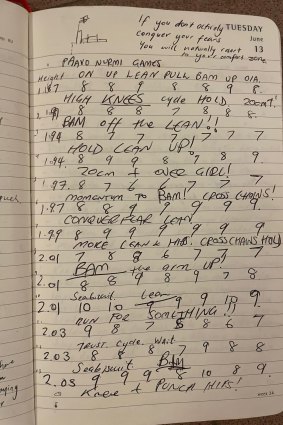 If you don't actively
conquer your fears
You will naturally resort
to your comfort zone
TUESDAY
June
13
PAAVO NURMI GAMES
Height ON UP LEAN PULL BAM UP O/A.
1.87 8 8 9 8 8 9 8.
HIGH KNEES cycle HOLD. 20cm!
1.91 8 8 8 7 8 8 8.
BAM off the LEAN!!
1.94 8 7 8 7 7 7 7
HOLD LEAN UP!
1.94. 8 9 9 8 7 8 9.
20cm + over GIRL!
1.97. 8 7 6 6 7 7 7
MOMENTUM to BAM! CROSS CHAINS!
1.97 8 8 9 9 9 9 9.
CONQUER FEAR LEAN
1.99 8 9 9 9 9 9 9.
MORE LEAN & HIPS. CROSS CHAINS HOLD
2.01 7 8 8 6 7 7 7
BAM the arm UP!
2.01 8 8 9 8 9 7 8
Seabiscuit. Lean
2.01 10 10 9 9 9 10 9.
RUN FOR SOMETHING!!
2.03 9 8 7 5 8 6 7
TRUST. Cycle. Wait
2.03 8 8 8 7 9 8 8
Seabiscuit BAM
2.03 9 9 9 8 10 8 9
Knee + PUNCH HIPS!